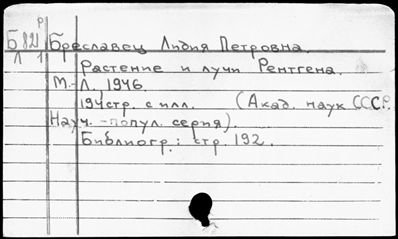 Р
Б 821 Бреславец Лидия Петровна.
Л 1
Растение и лучи Рентгена.
М.-Л. 1946.
194стр. с илл. (Акад. наук СССР.
Науч.-попул. серия).
Библиогр.: стр. 192.